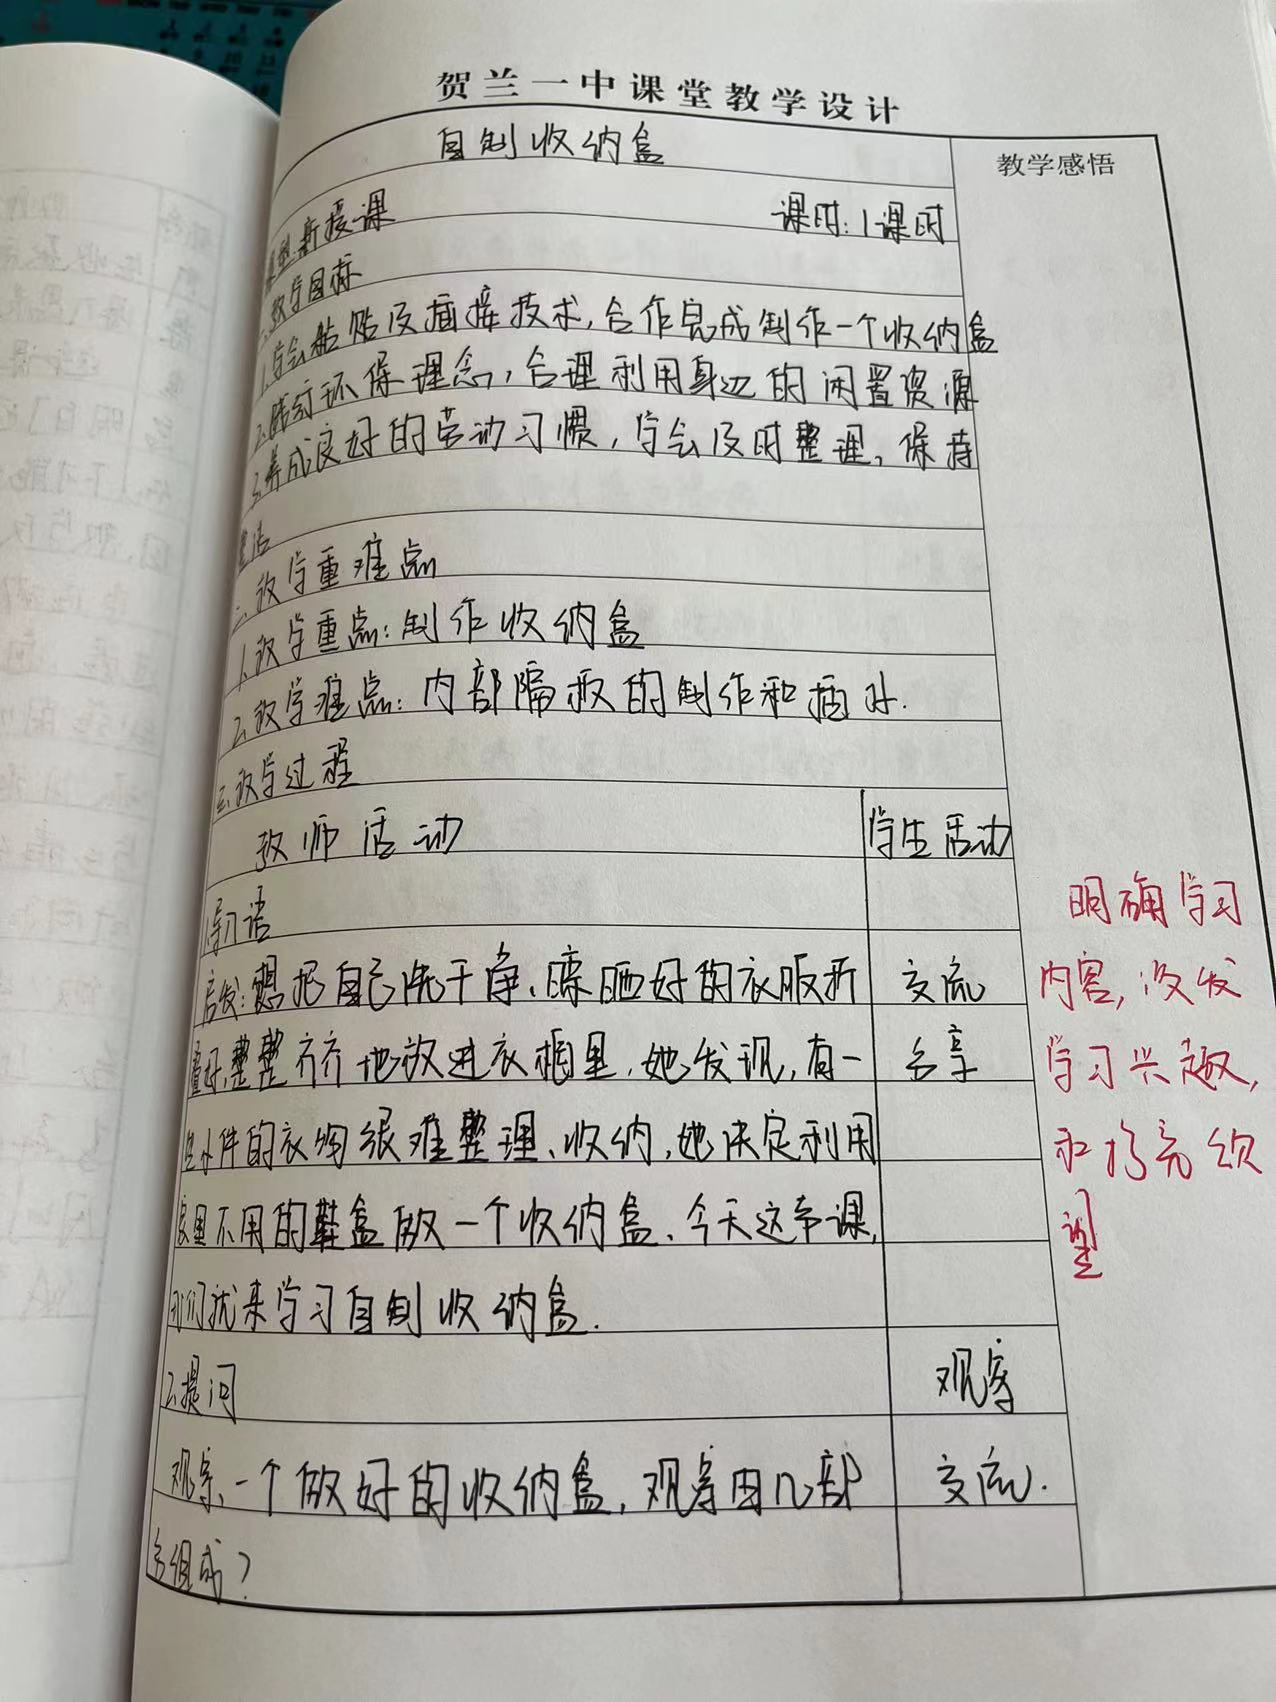 贺兰一中课堂教学设计
自制收纳盒
教学感悟
课型:新授课 课时:1课时
一、教学目标
1.学会黏贴及插接技术,合作完成制作一个收纳盒
2.践行环保理念,合理利用身边的闲置资源
3.养成良好的劳动习惯,学会及时整理、保持
整洁
二、教学重难点
1、教学重点:制作收纳盒
2、教学难点:内部隔板的制作和插外.
三、教学过程
教师活动 学生活动
1.导语
启发:想把自己洗干净、晾晒好的衣服折 交流
叠好,整整齐齐地放进衣柜里,她发现,有一 分享
些小件的衣物很难整理、收纳,她决定利用
家里不用的鞋盒做一个收纳盒、今天这节课,
我们就来学习自制收纳盒.
2.提问 观察
观察、一个做好的收纳盒,观察由几部 交流.
分组成?
明确学习
内容,激发
学习兴趣,
和探究欲
望